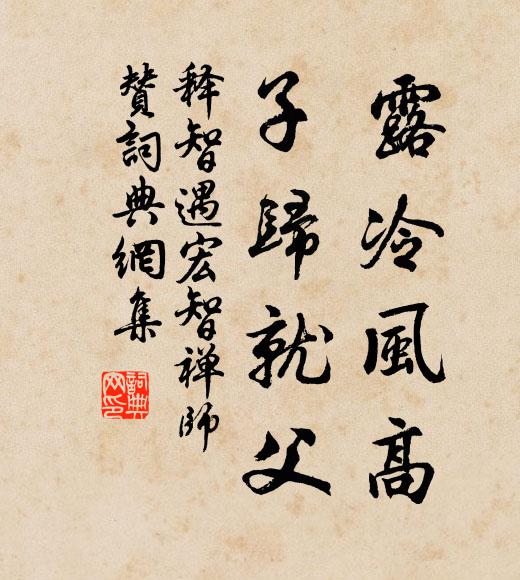 露冷風高
子歸就父
释智遇宏智禅師
贊詞典網集
詞典网印